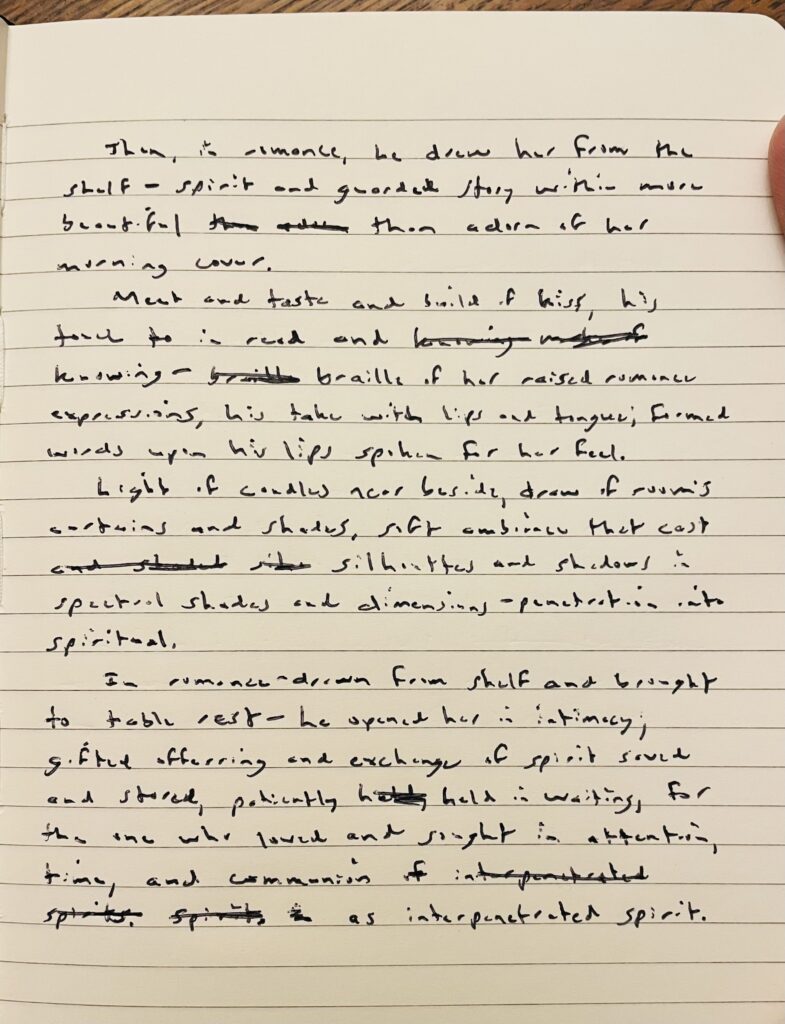 Then, in romance, he drew her from the
shelf – spirit and guarded story within more
beautiful than adorn of her
morning cover.
Meet and taste and build of kiss, his
touch to in read and
knowing – braille of her raised romance
expressions, his take with lips and tongue; formed
words upon his lips spoken for her feel.
Light of candles near beside, draw of room's
curtains and shades, soft ambiance that cast
and shaded silhouttes and shadows in
spectral shades and dimensions – penetration into
spiritual.
In romance – drawn from shelf and brought
to table rest – he opened her in intimacy;
gifted offerring and exchange of spirit saved
and stored, patiently held in waiting, for
the one who loved and sought in attention,
time, and communion
as interpenetrated spirit.